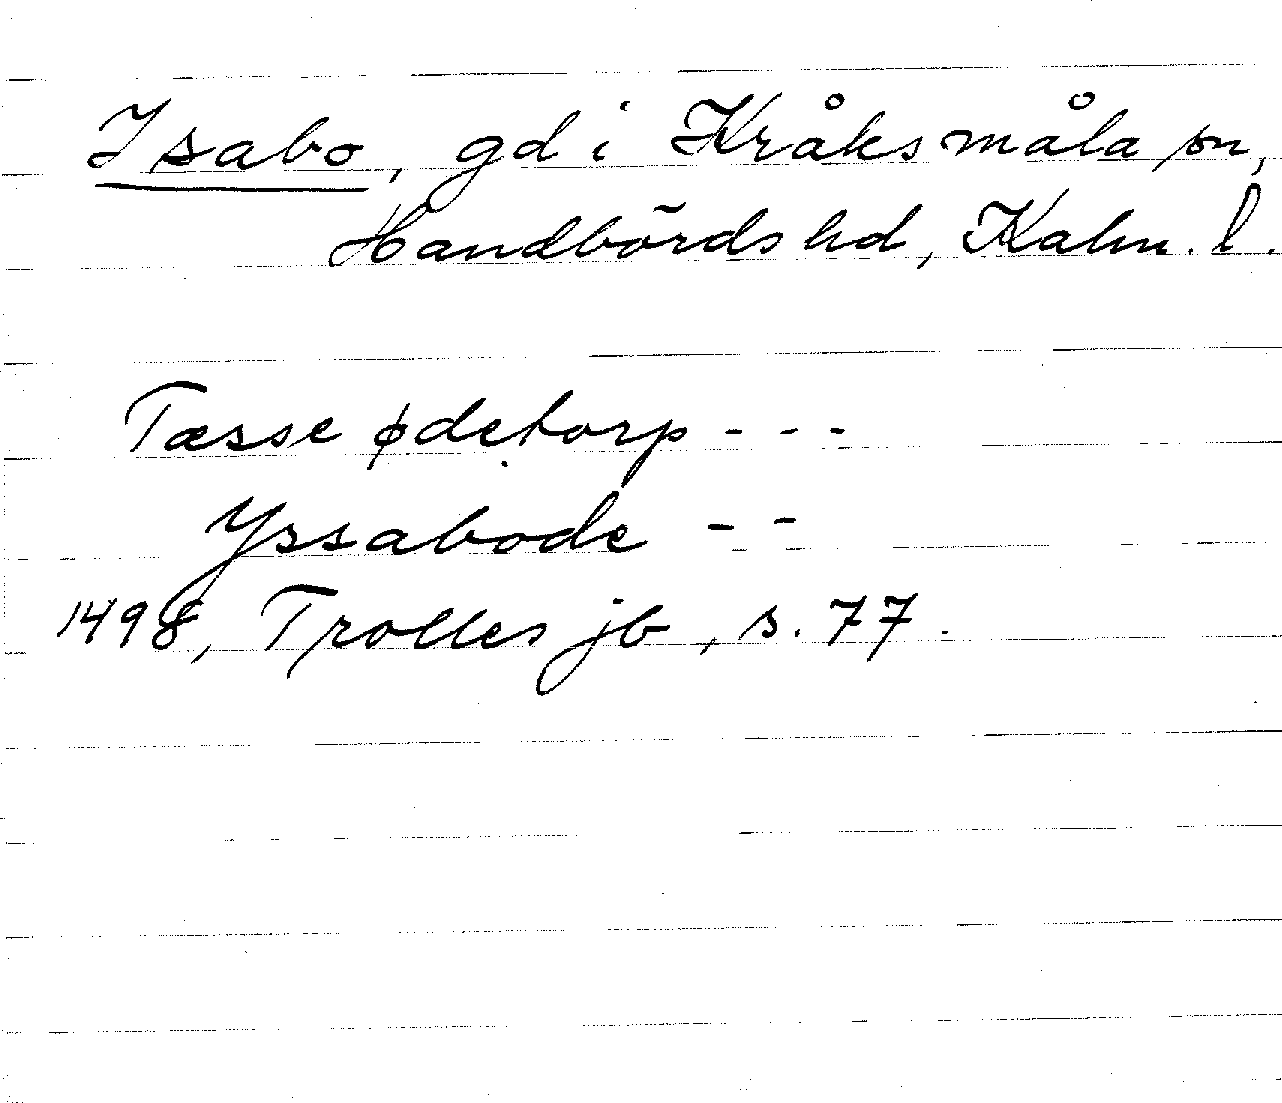 Isabo, gd i Kråksmåla sn,
Handbörds hd, Kalm. l.
Tæsse ødetorp - - -
Yssabode - -
1498, Trolles jb, s. 77.